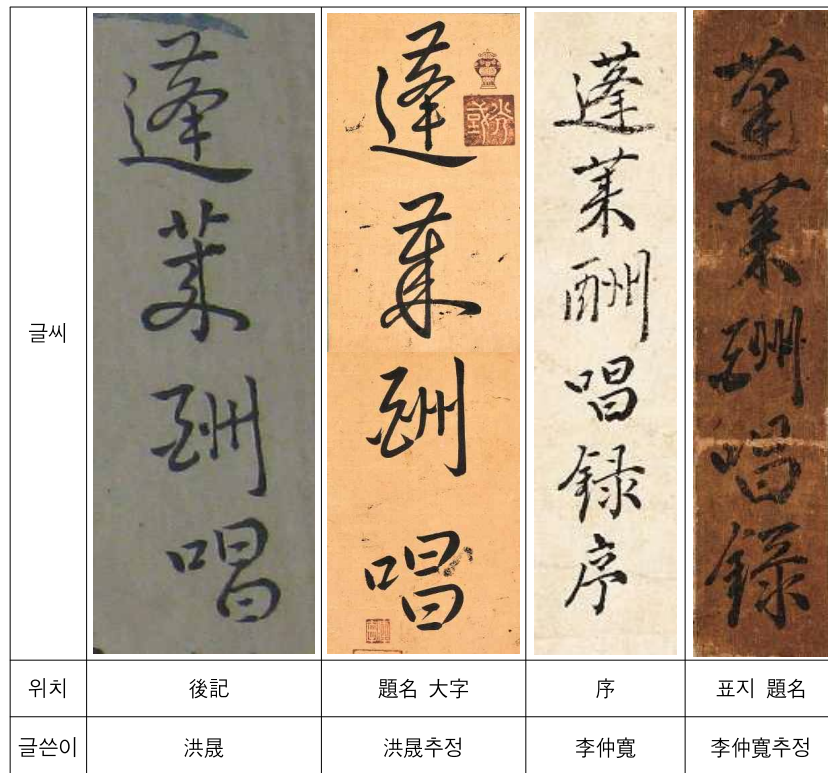 글씨
蓬萊酬唱
蓬萊酬唱
蓬萊酬唱録序
蓬萊酬唱録
위치
後記
題名 大字
序
표지 題名
글쓴이
洪晟
洪晟추정
李仲寬
李仲寬추정